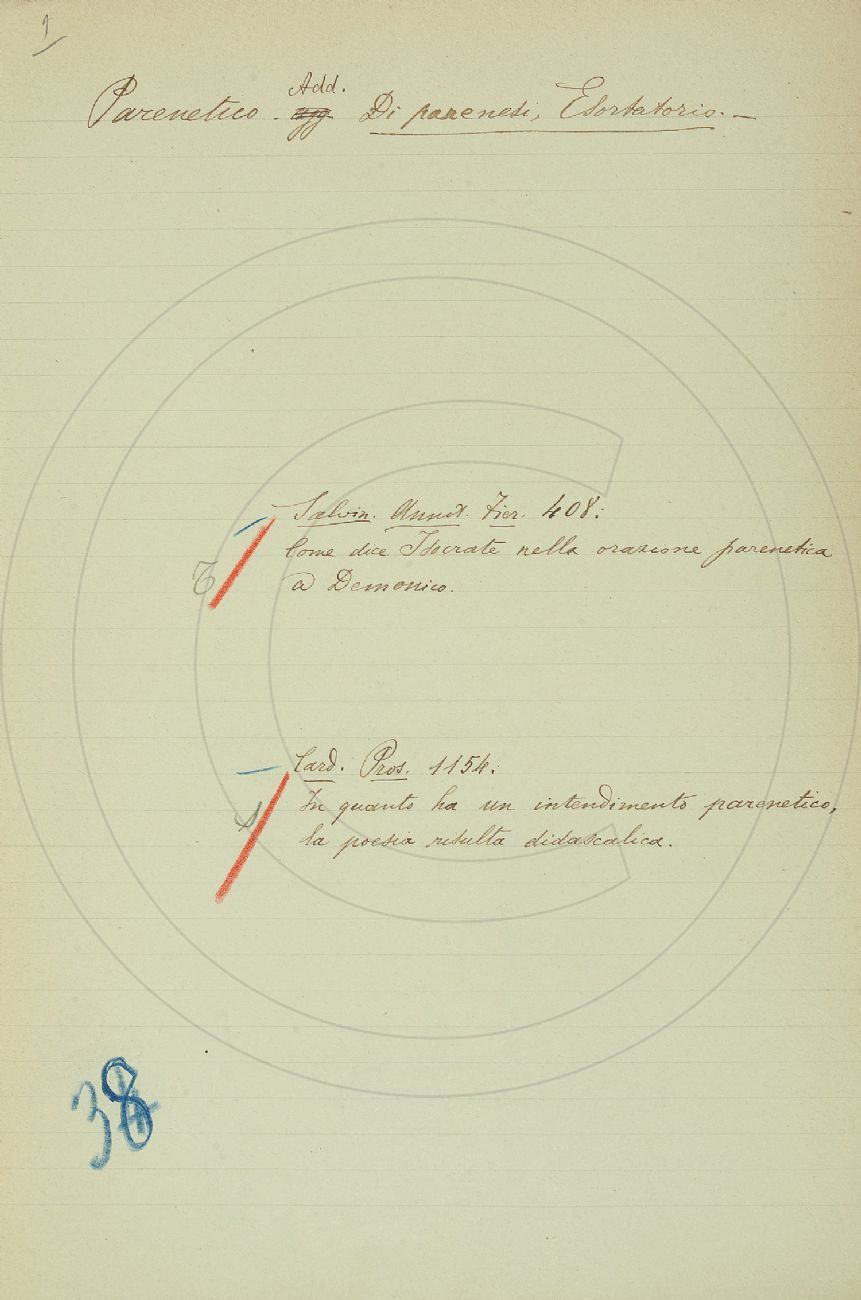 1
Add.
Parenetico. agg Di parenesi, Esortatorio. —
Salvin. Annot. Fier. 408:
Come dice Isocrate nella orazione parenetica
a Demonico.
Card. Pros. 1154:
In quanto ha un intendimento parenetico,
la poesia risulta didascalica.
38